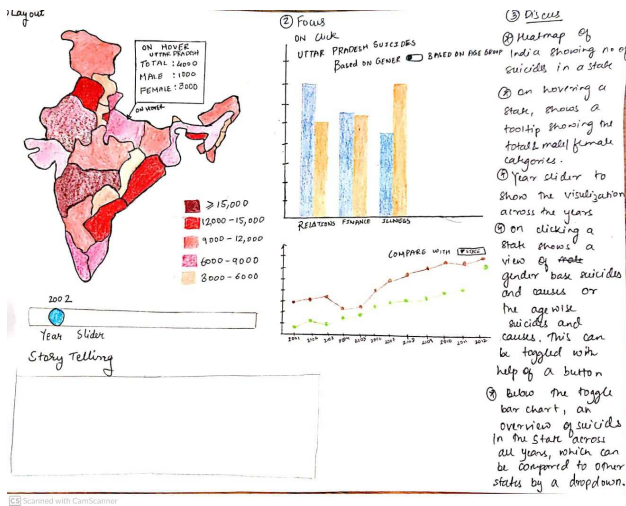 Layout
ON HOVER
UTTAR PRADESH
TOTAL : 4000
MALE : 1000
FEMALE : 3000
ON HOVER
≥ 15,000
12,000 - 15,000
9000 - 12,000
6000 - 9000
3000 - 6000
2002
Year Slider
Story Telling
② Focus
ON CLICK
UTTAR PRADESH SUICIDES
BASED ON GENER
BASED ON AGE GROUP
RELATIONS FINANCE ILLNESS
COMPARE WITH
2001 2002 2003 2004 2005 2006 2007 2008 2009 2010 2011 2012
③ Discus
Heatmap of
India showing no of
suicides in a state
on hovering a
state, shows a
tooltip showing the
total & male/female
categories.
Year slider to
show the visulization
across the years
on clicking a
state shows a
view of
gender base suicides
and causes or
the age wise
suicides and
causes. This can
be toggled with
help of a button
Below the toggle
bar chart, an
overview of suicids
in the state across
all years, which can
be compared to other
states by a dropdown.
CS Scanned with CamScanner